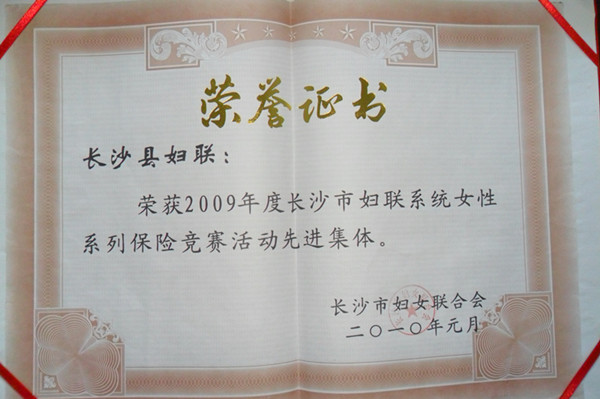 荣誉证书
长沙县妇联：
荣获2009年度长沙市妇联系统女性
系列保险竞赛活动先进集体。
长沙市妇女联合会
二〇一〇年元月